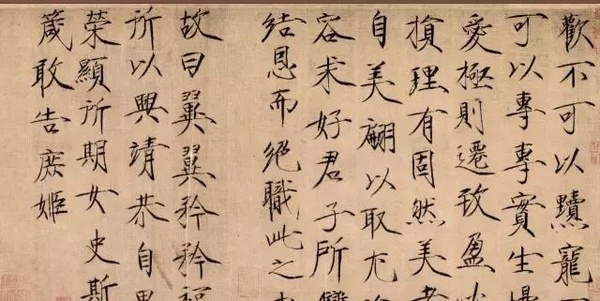 歡不可以黷寵
可以專專實生慢
愛極則遷致盈必
損理有固然美者
自美翩以取尤
容求好君子所讎
結恩而絕職此之
故曰翼翼矜矜福
所以興靖恭自思
榮顯所期女史斯
箴敢告庶姬